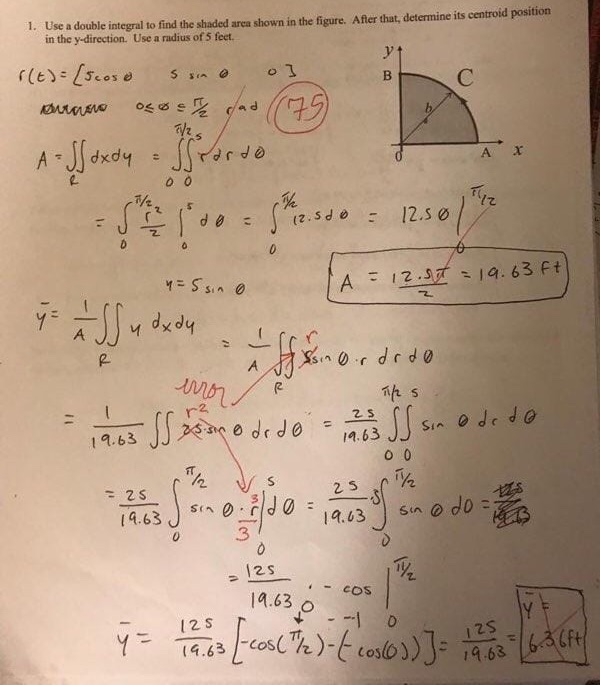 1. Use a double integral to find the shaded area shown in the figure. After that, determine its centroid position
in the y-direction. Use a radius of 5 feet.
r(t) = [5cosθ 5 sinθ 0]
0≤θ≤π/2 rad
75
y
B
C
b
0
A x
A = ∬_R dxdy = ∫_0^{π/2} ∫_0^5 r dr dθ
= ∫_0^{π/2} r²/2 |_0^5 dθ = ∫_0^{π/2} 12.5dθ = 12.5θ |_0^{π/2}
A = 12.5π/2 = 19.63 ft
y = 5 sinθ
ȳ = 1/A ∬_R y dxdy = 1/A ∬_R 5sinθ·r drdθ
r
error
r²
= 1/19.63 ∬ 25·sinθ drdθ = 25/19.63 ∫_0^{π/2} ∫_0^5 sinθ dr dθ
= 25/19.63 ∫_0^{π/2} sinθ·r |_0^5 dθ = 25/19.63 ·5 ∫_0^{π/2} sinθ dθ =
3
3
= 125/19.63 · -cos |_0^{π/2}
0 -1
ȳ = 125/19.63 [-cos(π/2)-(-cos(0))] = 125/19.63 = ȳ = 6.36ft